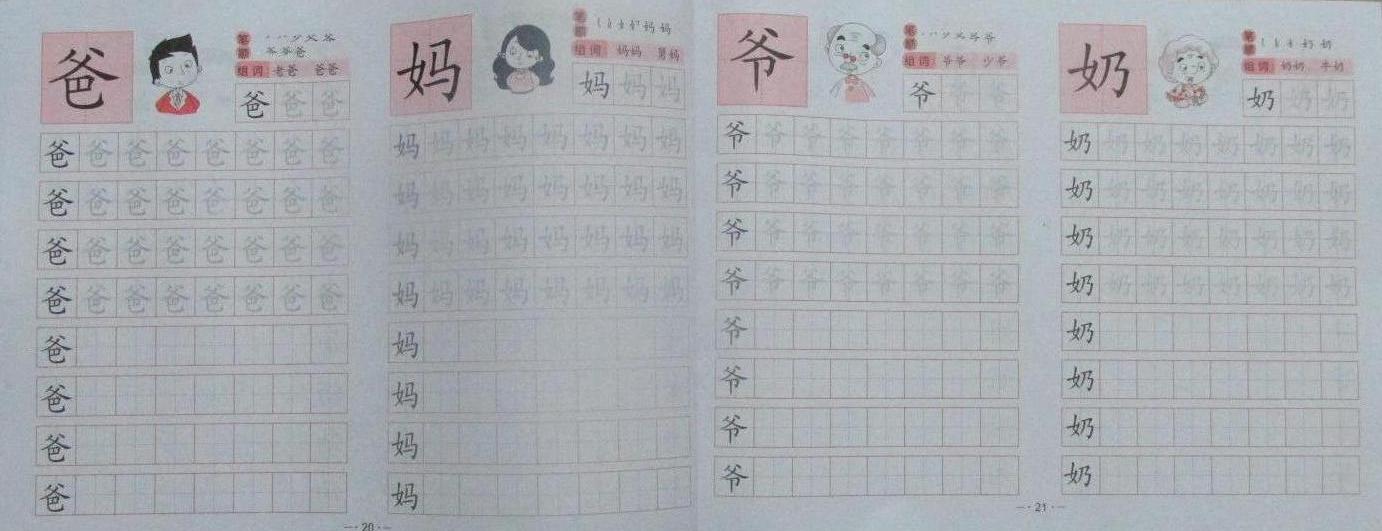 爸
笔顺
爸
组词 老爸 爸爸
爸 爸 爸
爸 爸 爸 爸 爸 爸 爸 爸
爸 爸 爸 爸 爸 爸 爸 爸
爸 爸 爸 爸 爸 爸 爸 爸
爸 爸 爸 爸 爸 爸 爸 爸
爸
爸
爸
爸
妈
笔顺 妈 妈
组词 妈妈 舅妈
妈 妈 妈
妈 妈 妈 妈 妈 妈 妈 妈
妈 妈 妈 妈 妈 妈 妈 妈
妈 妈 妈 妈 妈 妈 妈 妈
妈 妈 妈 妈 妈 妈 妈 妈
妈
妈
妈
妈
— · 20 · —
爷
笔顺 爷
组词 爷爷 少爷
爷 爷 爷
爷 爷 爷 爷 爷 爷 爷 爷
爷 爷 爷 爷 爷 爷 爷 爷
爷 爷 爷 爷 爷 爷 爷 爷
爷 爷 爷 爷 爷 爷 爷 爷
爷
爷
爷
爷
奶
笔顺 奶
组词 奶奶 牛奶
奶 奶 奶
奶 奶 奶 奶 奶 奶 奶 奶
奶 奶 奶 奶 奶 奶 奶 奶
奶 奶 奶 奶 奶 奶 奶 奶
奶 奶 奶 奶 奶 奶 奶 奶
奶
奶
奶
奶
— · 21 · —